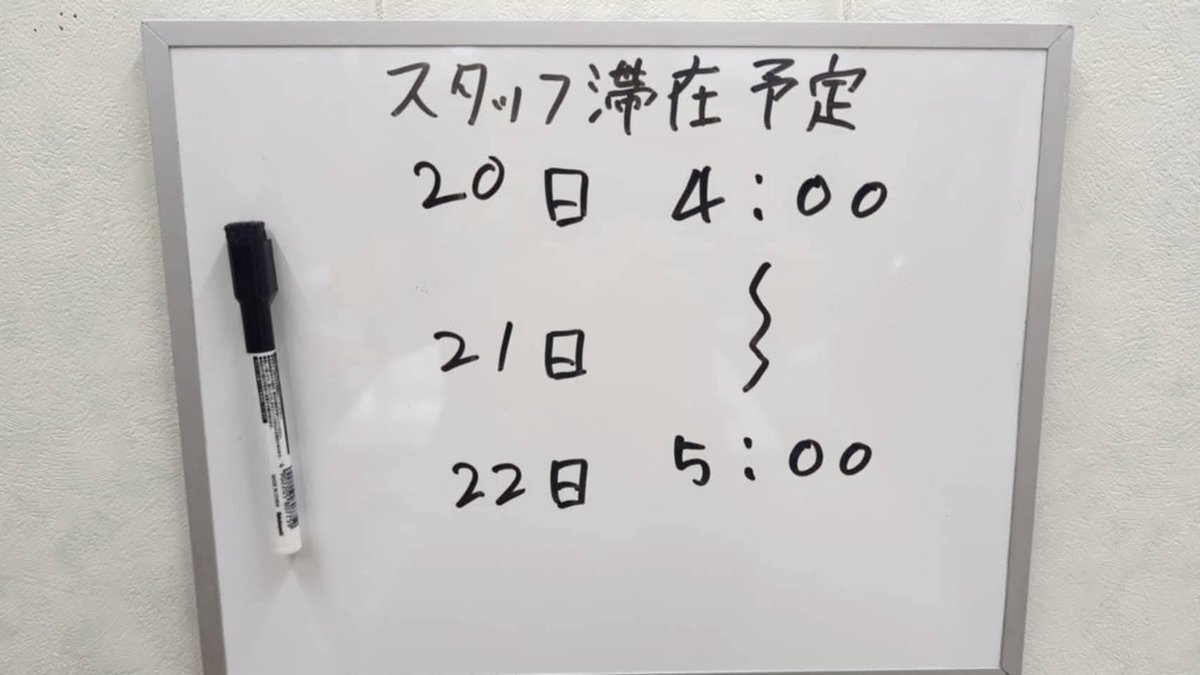 スタッフ滞在予定
20日 4:00
21日 〜
22日 5:00